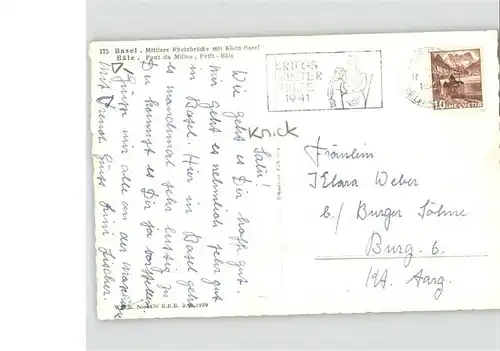 175 Basel. Mittlere Rheinbrücke mit Klein-Basel
Bâle. Pont du Milieu, Petit-Bâle
KRIEGS
WINTER
HILFE
1941
17
10 HELVETIA
Knick
Salü!
Wie geht es Dir hoff gut.
mir geht es nehmlich sehr gut
in Basel. Hier in Basel geht
es manchmal sehr lustig zu
Du kannst es Dir ja vorstellen.
Grüsse mir alle an der
Mit freundl. Gruss
Fräulein
Klara Weber
b/ Burger Söhne
Burg. b.
Aarg.
B.R.B. 3.10.1939